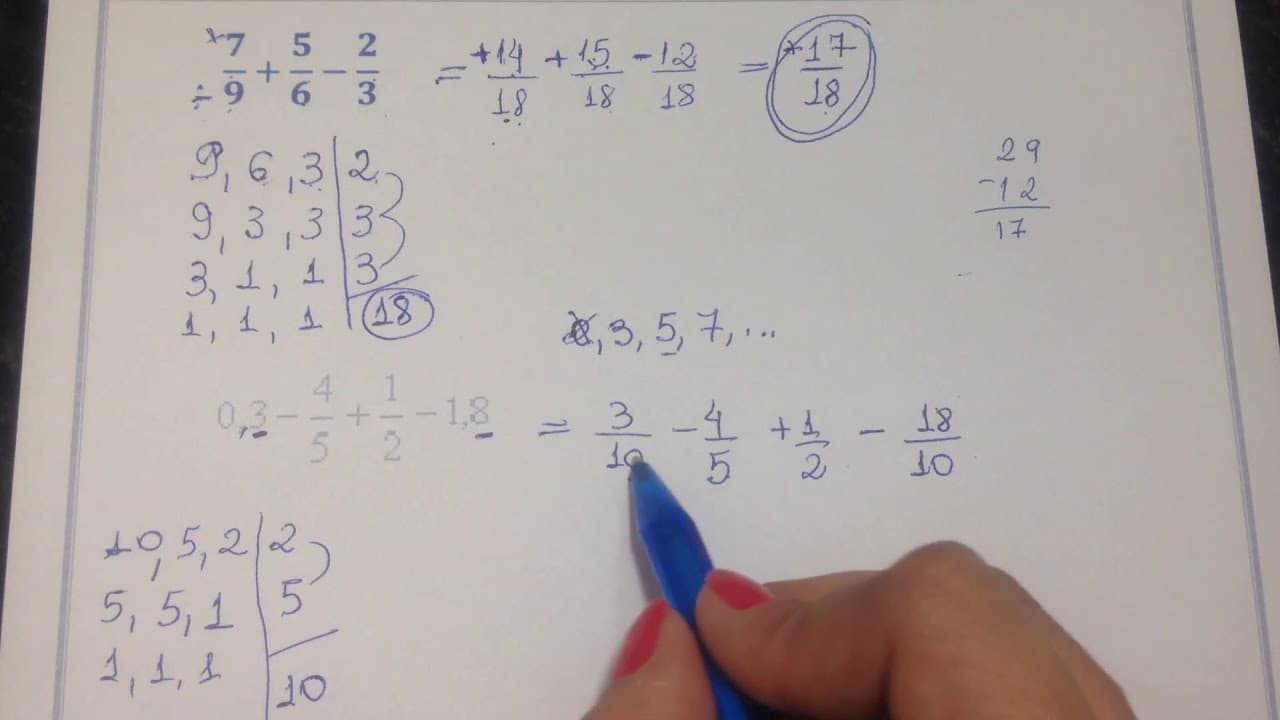 ×7/÷9 + 5/6 − 2/3 = +14/18 + 15/18 − 12/18 = +17/18
9, 6, 3 | 2
9, 3, 3 | 3
3, 1, 1 | 3
1, 1, 1 | 18
29
-12
17
2, 3, 5, 7, ...
0,3 − 4/5 + 1/2 − 1,8 = 3/10 − 4/5 + 1/2 − 18/10
10, 5, 2 | 2
5, 5, 1 | 5
1, 1, 1 | 10